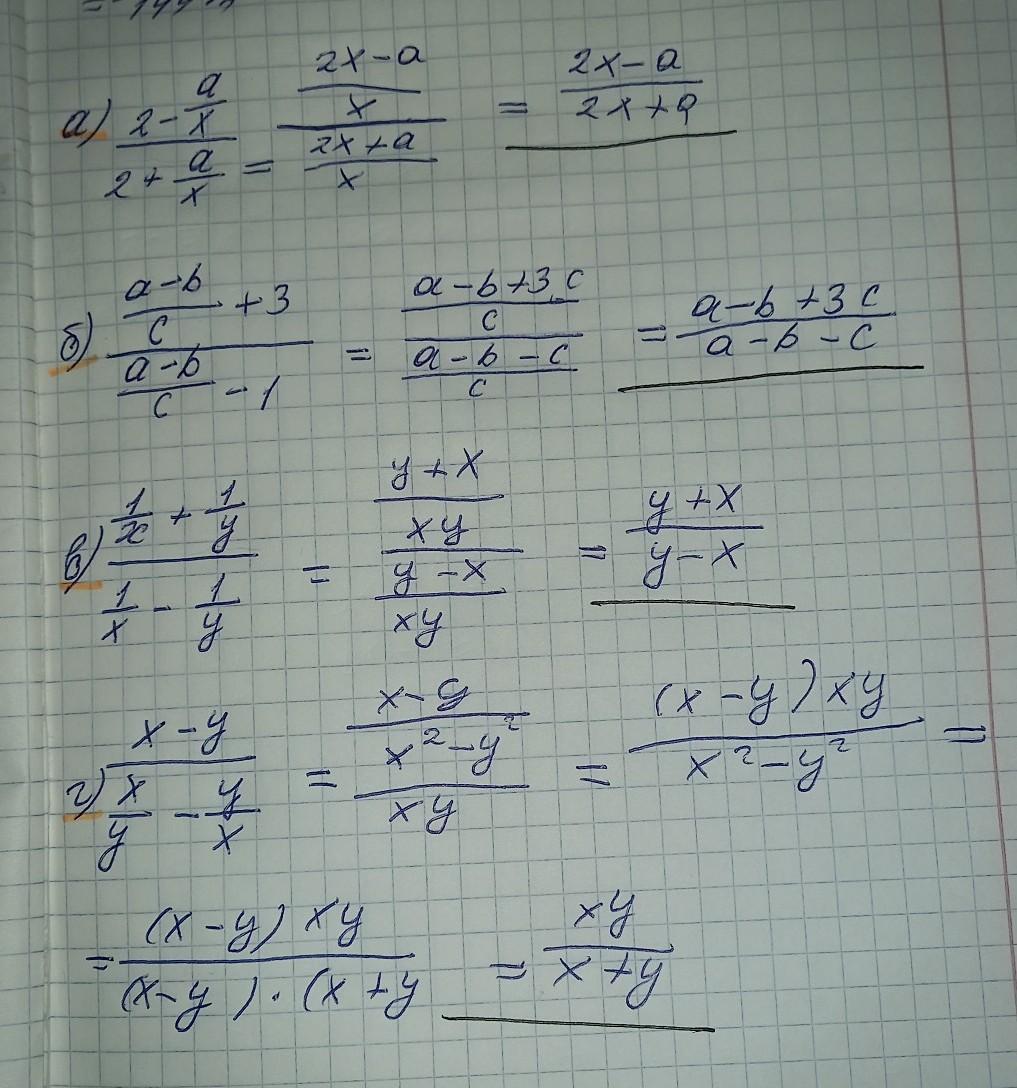 а) (2 - a/x)/(2 + a/x) = ((2x-a)/x)/((2x+a)/x) = (2x-a)/(2x+a)
б) ((a-b)/c + 3)/((a-b)/c - 1) = ((a-b+3c)/c)/((a-b-c)/c) = (a-b+3c)/(a-b-c)
в) (1/x + 1/y)/(1/x - 1/y) = ((y+x)/(xy))/((y-x)/(xy)) = (y+x)/(y-x)
г) (x-y)/(x/y - y/x) = (x-y)/((x²-y²)/(xy)) = ((x-y)xy)/(x²-y²) =
= ((x-y)xy)/((x-y)·(x+y) = xy/(x+y)